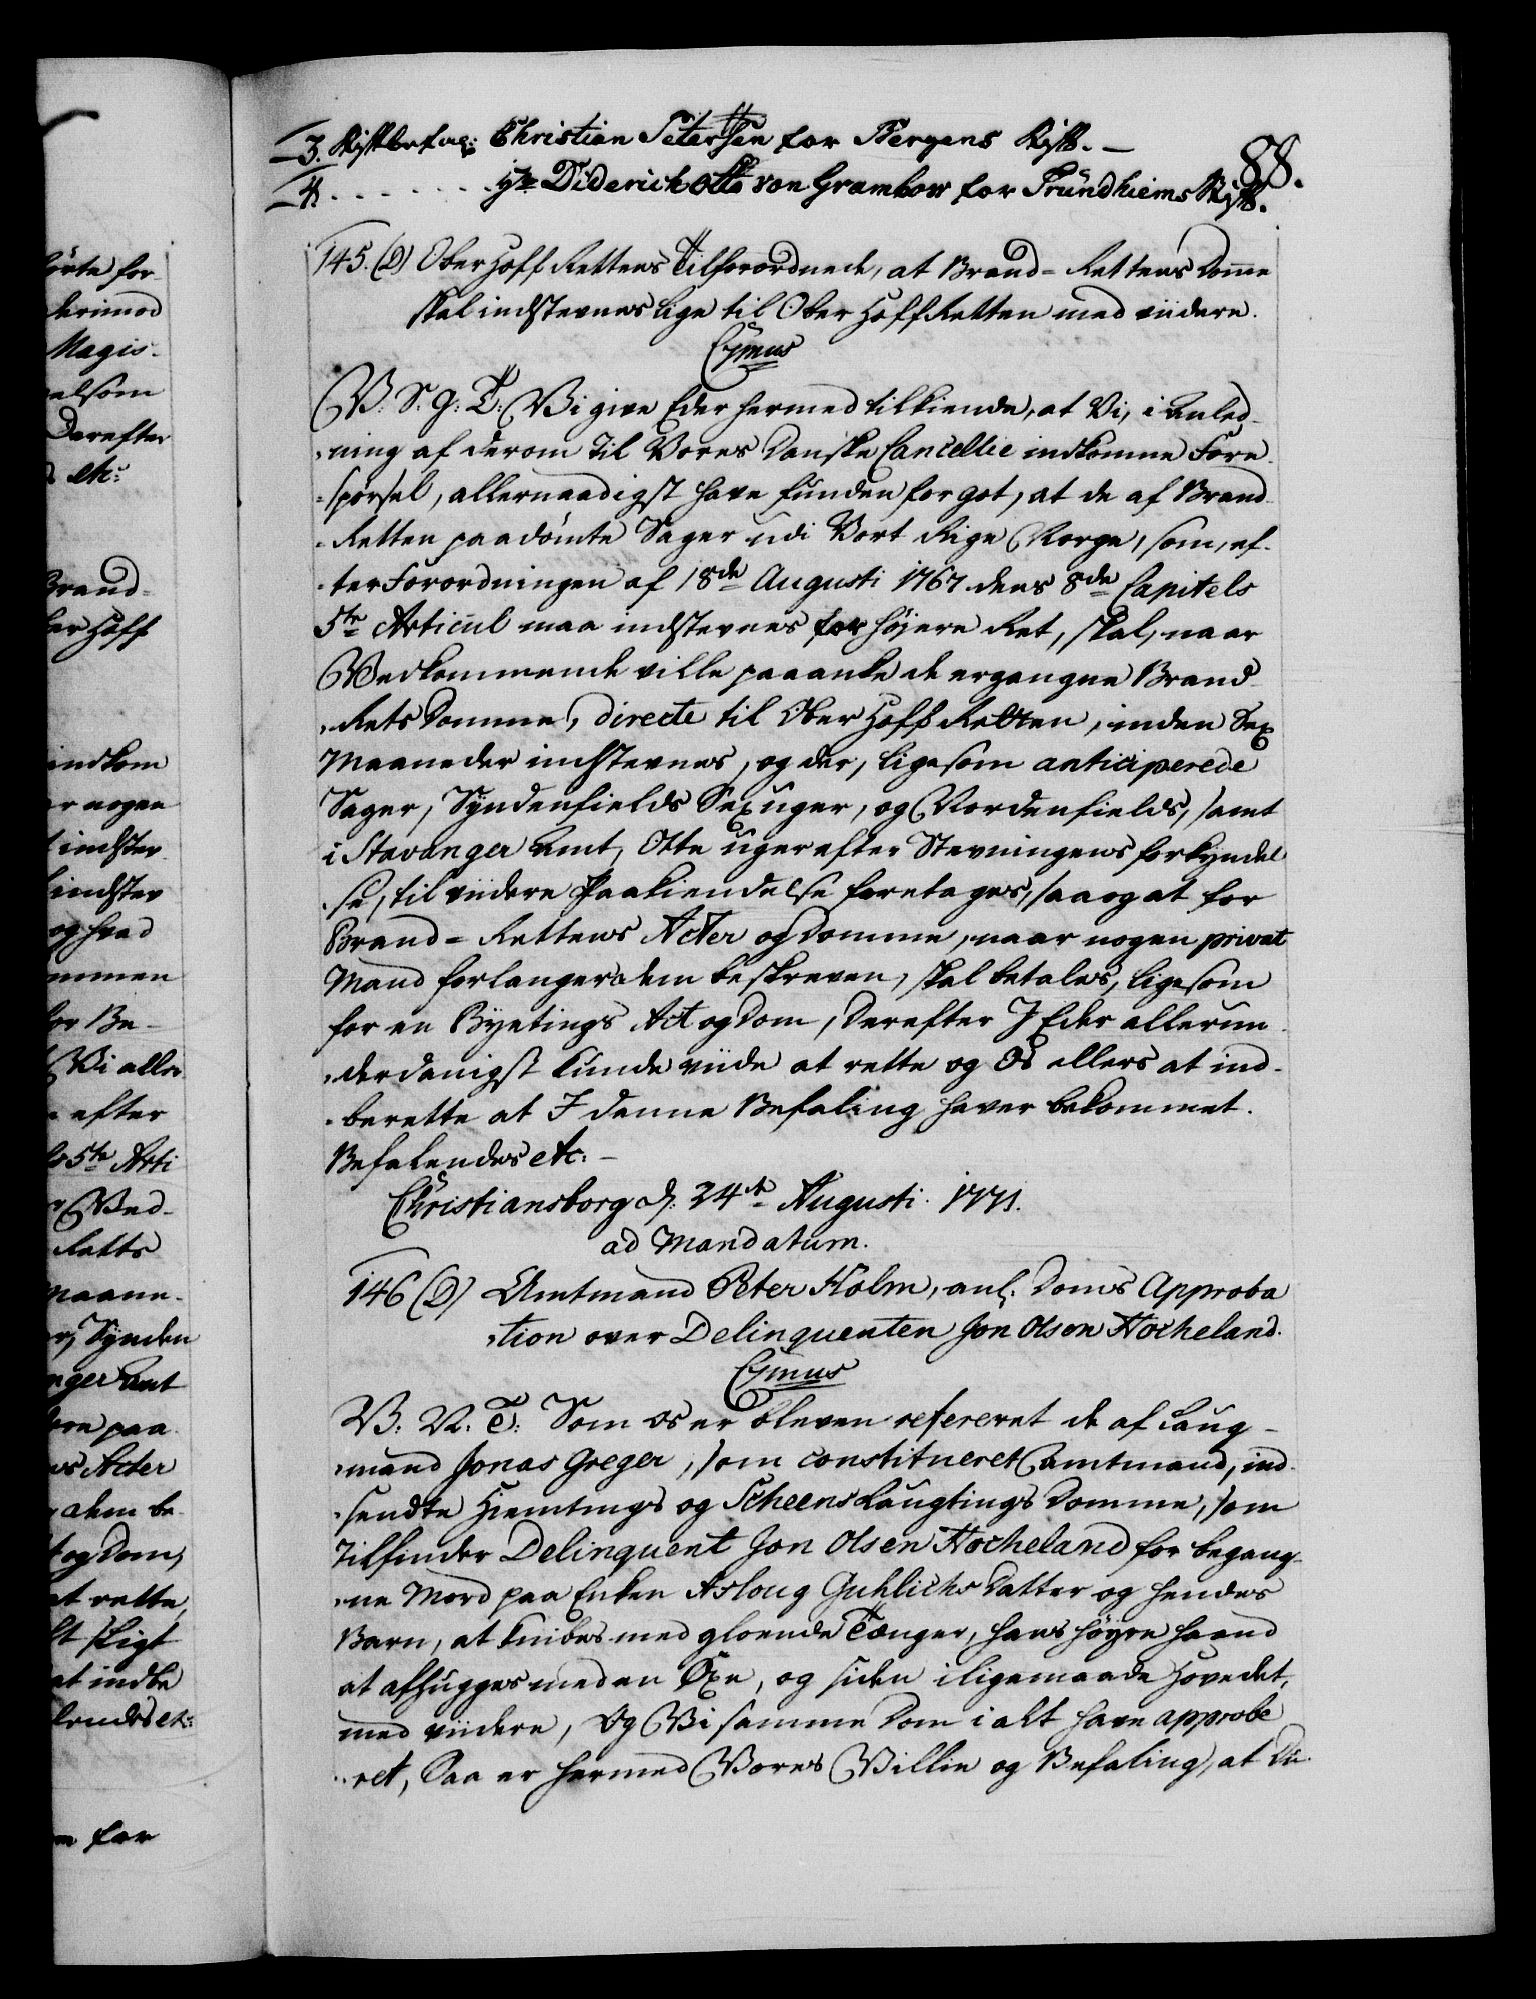 88.
3. Stiftbefal: Christian Petersen for Bergens Stift. —
4. - - - - - - - Hr Diderich Otto von Grambow for Trundhiems Stift.
145. (D) Ober Hoff Rettens Tilforordnede, at Brand= Rettens Domme
skal indstevnes lige til Ober Hoff Retten med viidere.
V: S: G: T: Vi give Eder hermed tilkiende, at Vi, i Anled-
-ning af derom til Vores Danske Cancellie indkomne Fore-
-spørsel, allernaadigst have funden for got, at de af Brand-
-Retten paadømte Sager udi Vort Rige Norge, som, ef-
-ter Forordningen af 18de Augusti 1767 dens 8de Capitels
5te Articul maa indstevnes for høyere Ret, skal, naar
Vedkommende ville paaanke de ergangne Brand-
-Rets Domme, directe til Ober Hoff Retten, inden Sex
Maaneder indstevnes, og der, ligesom anticiperede
Sager, Syndenfields Sex uger, og Nordenfields, samt
i Stavanger Amt, Otte uger efter Stevningens forkyndel-
-se, til viidere Paakiendelse foretages, saa og at for
Brand= Rettens Acter og Domme, naar nogen privat
Mand forlanger dem beskreven, skal betales, ligesom
for en Byetings Act og Dom, Derefter I Eder allerun-
-derdanigst kunde viide at rette og Os ellers at ind-
-berette at I denne Befaling haver bekommet.
Befalendes etc: —
Christiansborg d: 24de Augusti 1771.
ad Mandatum.
146 (D) Amtmand Peter Holm, anl: Doms Approba
-tion over Delinquenten Jon Olsen Hocheland.
V: N: T: Som os er bleven refereret de af Laug-
-mand Jonas Greger, som constitueret Amtmand, ind-
-sendte Hiemtings og Scheens Laugtings Domme, som
tilfinder Delinquent Jon Olsen Hocheland for begang-
-ne Mord paa Enken Asloug Guhlichs Datter og hendes
Barn, at knibes med gloende Tænger, hans høyre haand
at afhugges med en Øxe, og siden iligemaade Hovedet,
med viidere, Og Vi samme Dom i alt have approbe-
-ret, Saa er hermed Vores Villie og Befaling, at Du